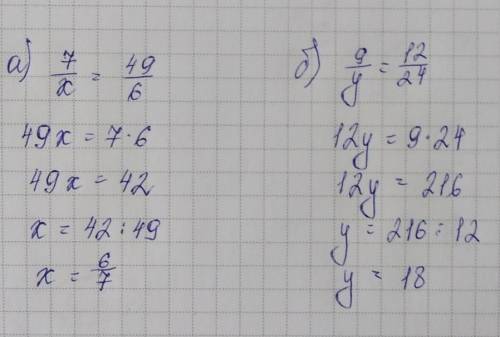 а) 7/x = 49/6
49x = 7·6
49x = 42
x = 42:49
x = 6/7
б) 9/y = 12/24
12y = 9·24
12y = 216
y = 216:12
y = 18